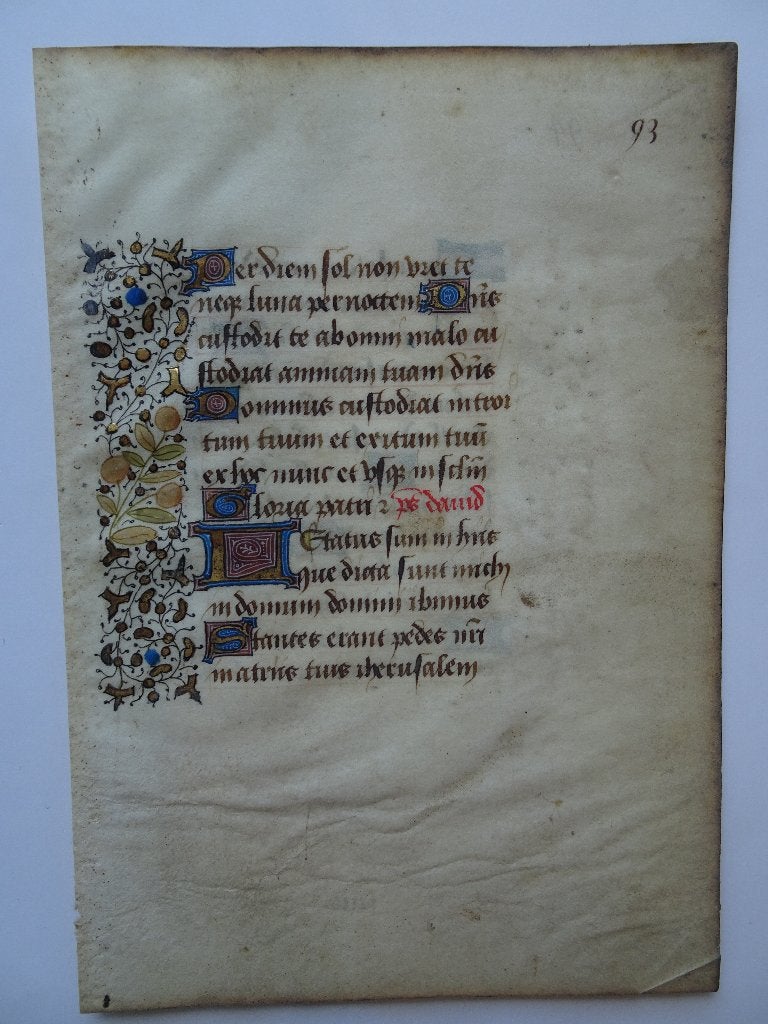 93
Per diem sol non uret te
neqꝫ luna per noctem Dn̄s
custodit te ab omni malo cu
stodiat animam tuam dn̄s
Dominus custodiat introi
tum tuum et exitum tuū
ex hoc nunc et vsqꝫ in sclm̄
Gloria patri ⁊ ps̄ dauid
Letatus sum in hiis
que dicta sunt michi
in domum domini ibimus
Stantes erant pedes nr̄i
in atriis tuis iherusalem